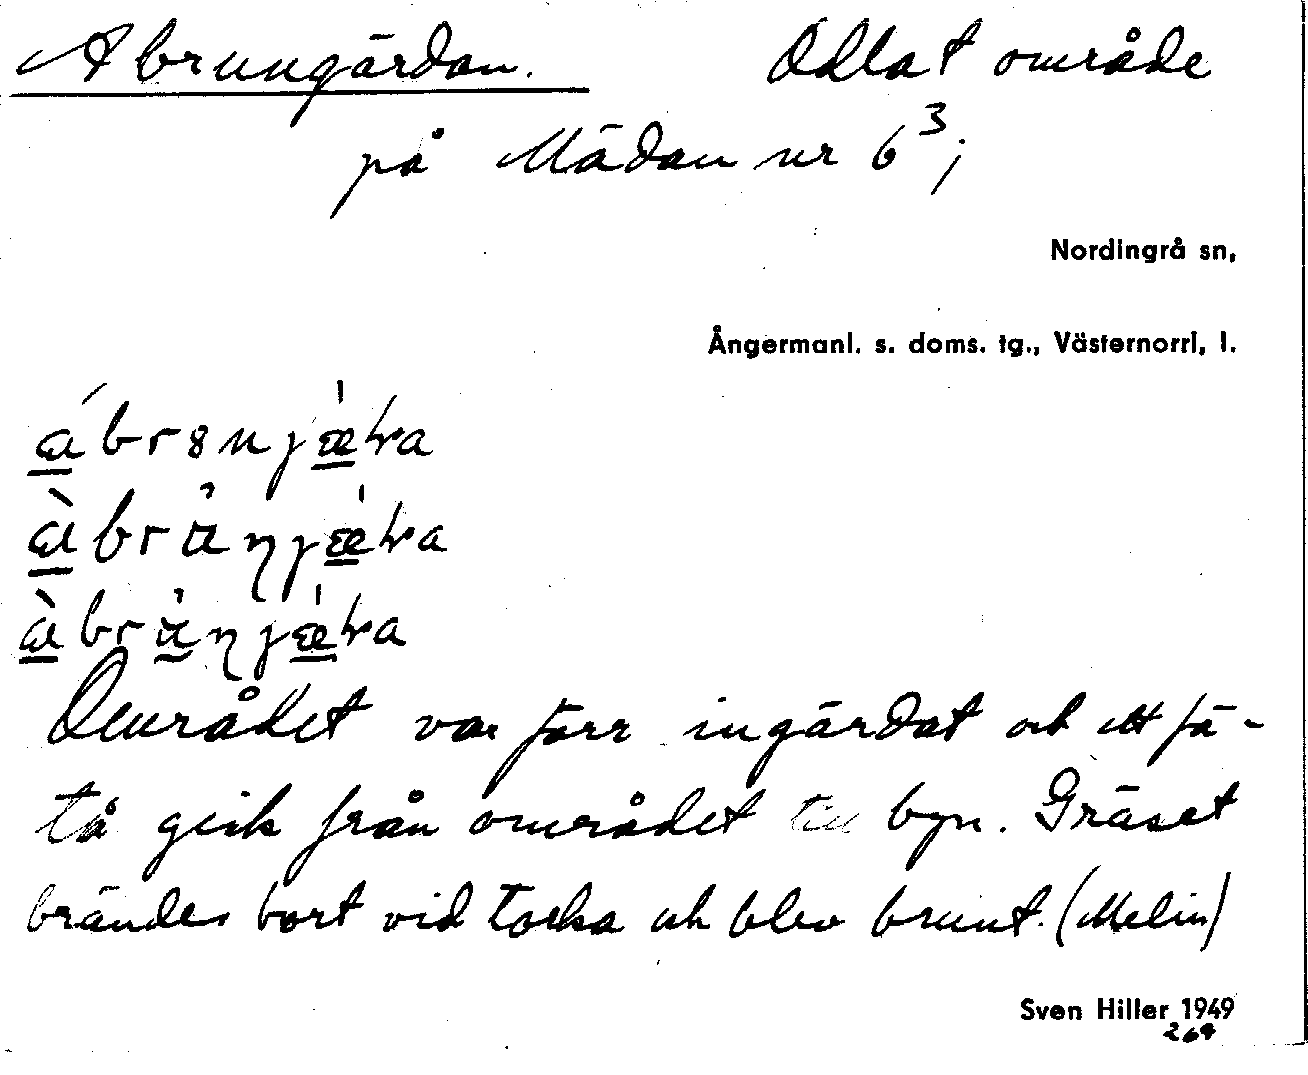 Abrungärdan. Odlat område
på Mädan nr 6³;
Nordingrå sn,
Ångermanl. s. doms. tg., Västernorrl, l.
Området var förr ingärdat och ett fä-
tå gick från området till byn. Gräset
brändes bort vid torka och blev brunt. (Melin)
Sven Hiller 1949
269